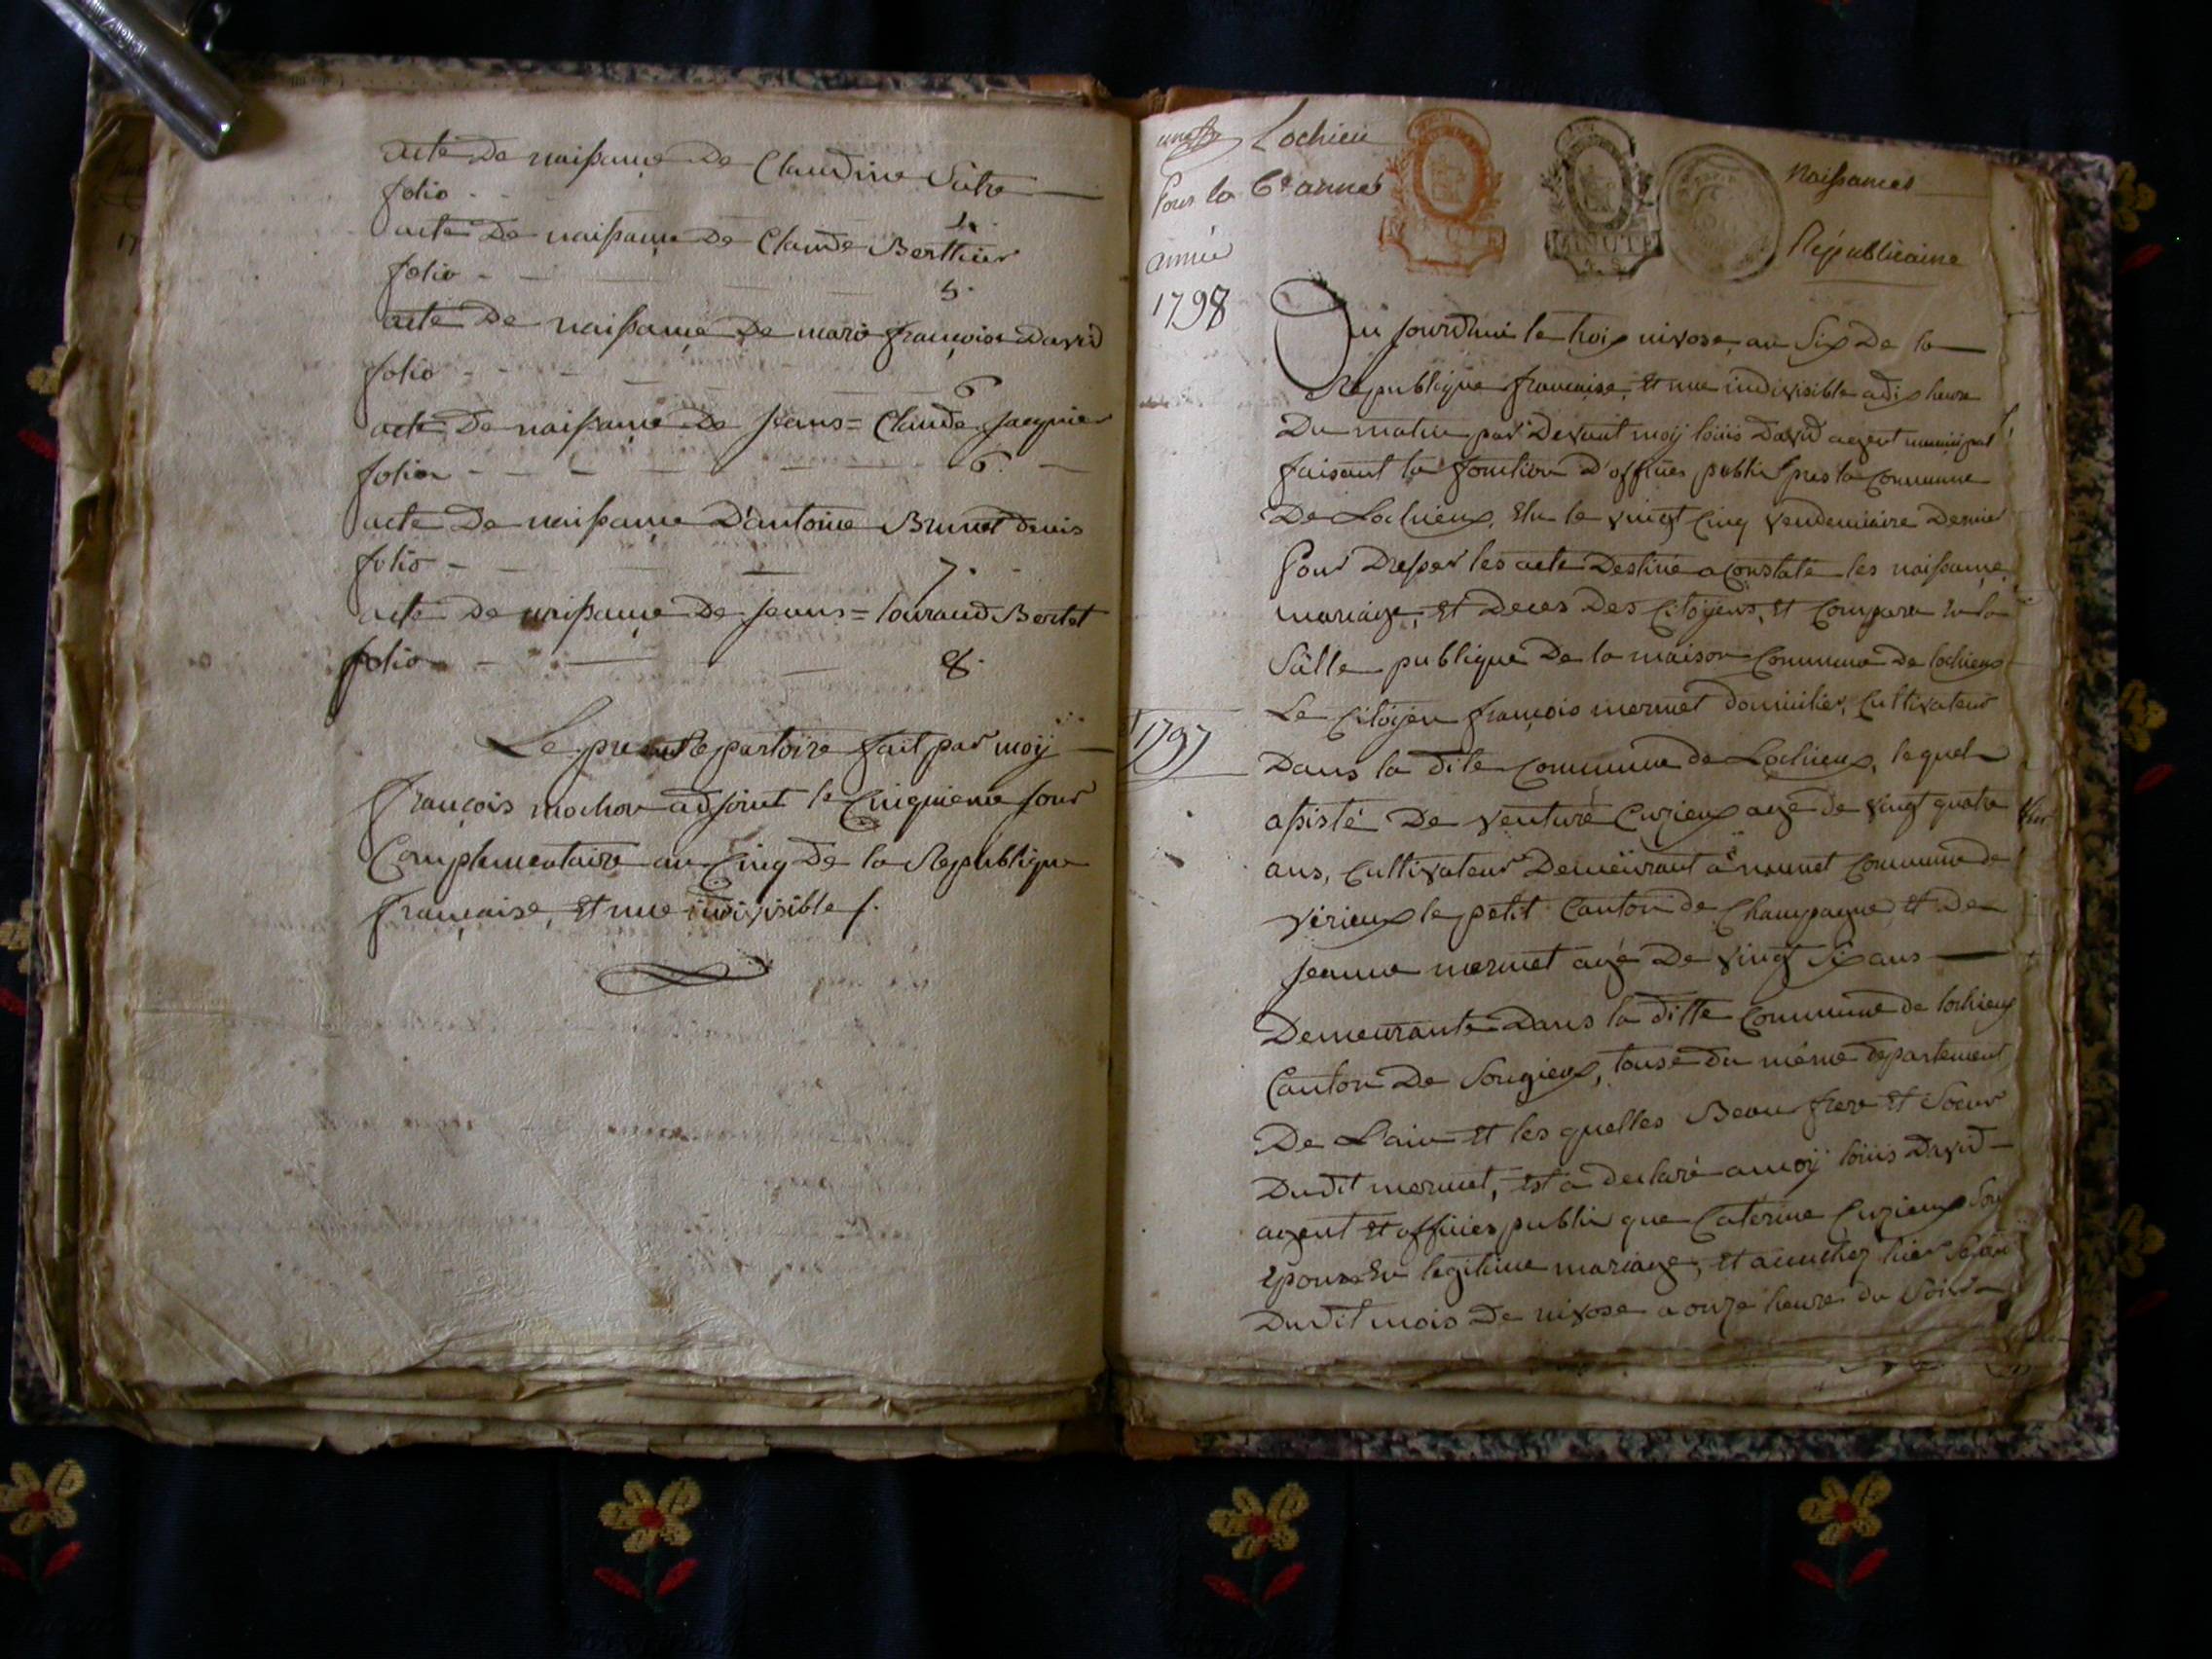 acte De naissance De Claudine Sutre
folio - 4.
acte De naissance De Claude Berthier
folio - - 5.
acte De naissance De marie françoise David
folio - - - 6
acte De naissance De Jeans = Claude Jacquier
folio - - - 6.
acte De naissance D'antoine Brunet denis
folio - - 7.
acte De naissance De Jeans = Louraud Bertet
folio - - 8.
Le present Repartoire fait par moÿ
françois mochon adjoint le Cinquieme jour
Complementaire an Cinq De la Republique
française, et une indivisible /.
Lochieu
Pour la 6e année
naissances
Républicaine
année
1798
MINUTE
Au jourd'hui le trois nivose, an Six De la
Republique française, et une indivisible a dix heure
Du matin par Devant moÿ louis David agent municipal
faisant la fonction d'officier public pres la Commune
De Lochieux, Elu le vingt Cinq vendemiaire Dernier
Pour Dresser les acte Destiné a Constaté les naissance,
mariage, et Deces Des Citoÿens, et Comparu En la
Salle publique De la maison Commune de lochieux
Le Citoÿen françois mermet domicilier, Cultivateur
1797
Dans la dite Commune de Lochieux, lequel
assisté De venture Cuzieux agé de vingt quatre
ans, Cultivateur Demeürant a munet Commune de
virieux le petit Canton de Champagne et De
Jeanne mermet agé De vingt Six ans
Demeurante Dans la ditte Commune de lochieux
Canton De Songieux, touse du même departement
De Lain et les quelles Beau frere et Soeur
Du dit mermet, est a declaré a moÿ louis David
agent et officier public que Caterine Cuzieux Son
Epouse En legitime mariage, et acouchez hier
Du dit mois De nivose a onze heure du Soir